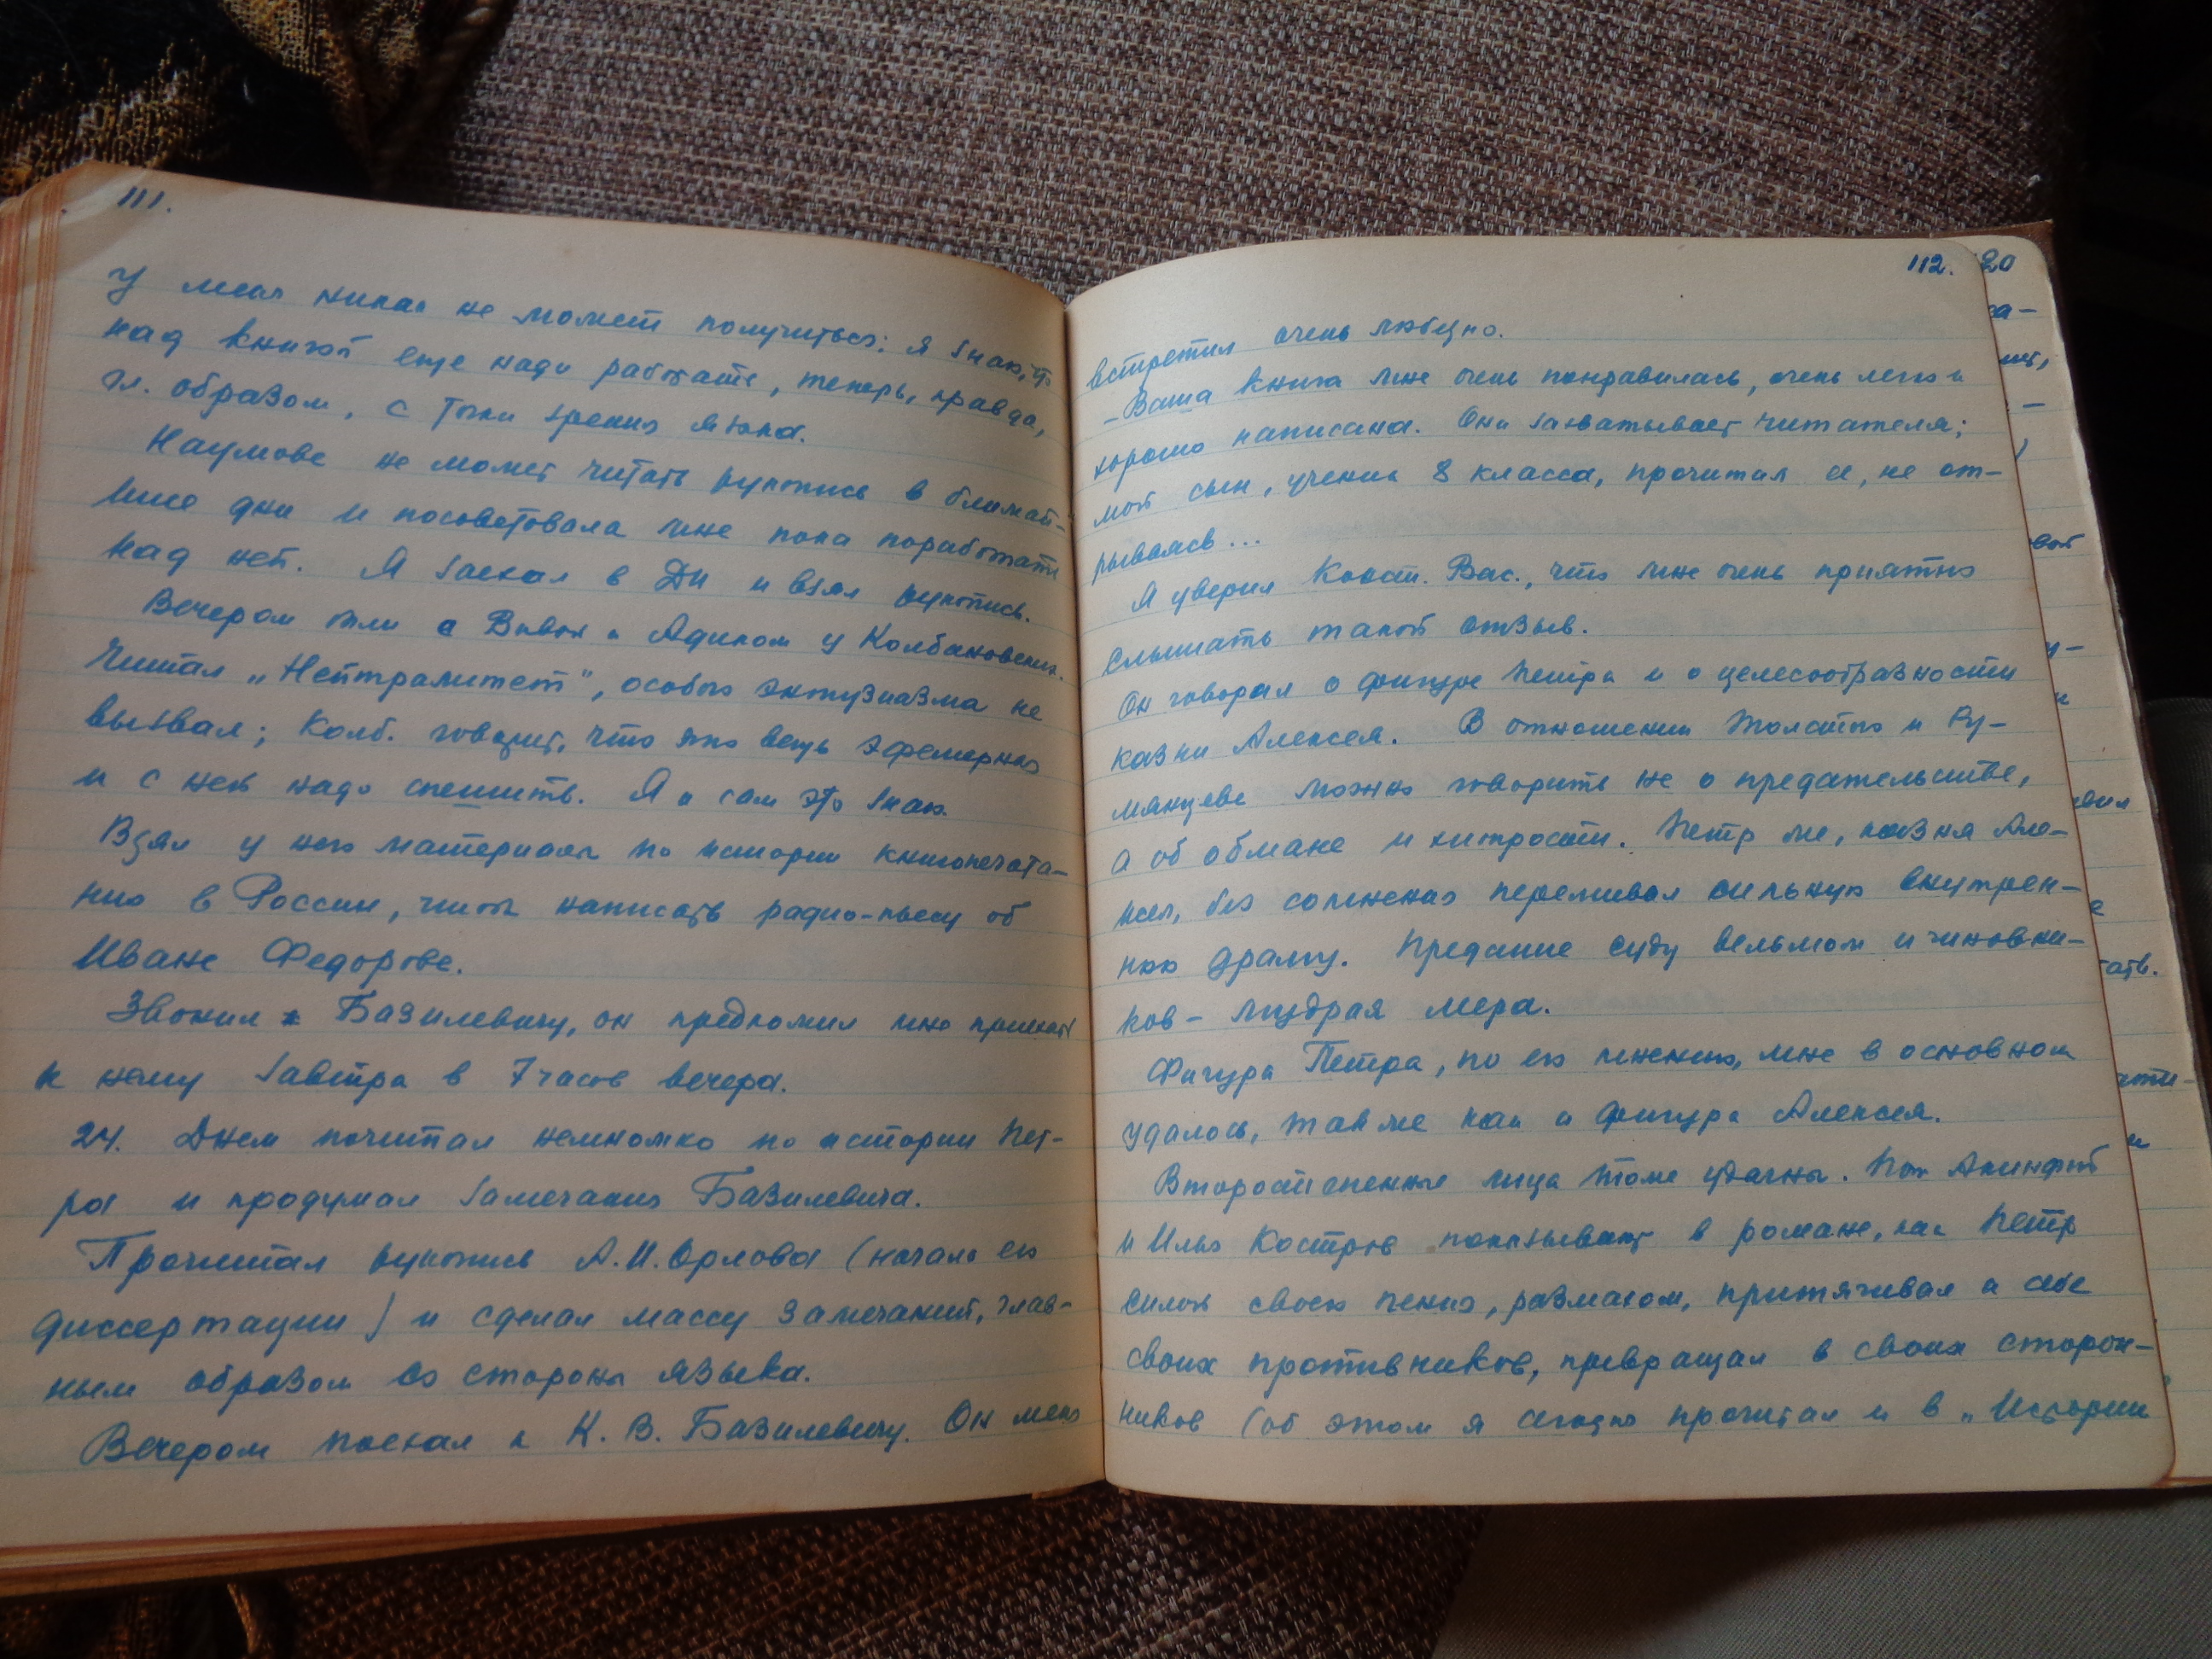 111.
У меня никак не может получиться: я знаю, что
над книгой еще надо работать, теперь, правда,
гл. образом, с точки зрения языка.
Наумова не может читать рукопись в ближай-
шие дни и посоветовала мне пока поработать
над ней. Я заехал в ДИ и взял рукопись.
Вечером были с Вивой и Адиком у Колбановских.
Читал „Нейтралитет", особого энтузиазма не
вызвал; Колб. говорит, что это вещь эфемерная
и с ней надо спешить. Я и сам это знаю.
Взял у него материалы по истории книгопечата-
ния в России, чтоб написать радио-пьесу об
Иване Федорове.
Звонил к Базилевичу, он предложил мне приехать
к нему завтра в 7 часов вечера.
24. Днем почитал немножко по истории Пет-
ра и продумал замечания Базилевича.
Прочитал рукопись А.И. Орлова (начало его
диссертации) и сделал массу замечаний, глав-
ным образом со стороны языка.
Вечером поехал к К. В. Базилевичу. Он меня
112.
встретил очень любезно.
– Ваша книга мне очень понравилась, очень легко и
хорошо написана. Она захватывает читателя;
мой сын, ученик 8 класса, прочитал ее, не от-
рываясь...
Я уверил Конст. Вас., что мне очень приятно
слышать такой отзыв.
Он говорил о фигуре Петра и о целесообразности
казни Алексея. В отношении Толстого и Ру-
мянцева можно говорить не о предательстве,
а об обмане и хитрости. Петр же, казня Але-
ксея, без сомнения переживал сильную внутрен-
нюю драму. Предание суду вельмож и чиновни-
ков – мудрая мера.
Фигура Петра, по его мнению, мне в основном
удалась, так же как и фигура Алексея.
Второстепенные лица тоже удачны. Поп Акинфий
и Илья Костров показывают в романе, как Петр
силой своего гения, размахом, притягивал к себе
своих противников, превращал в своих сторон-
ников (об этом я сегодня прочитал и в „Истории
20